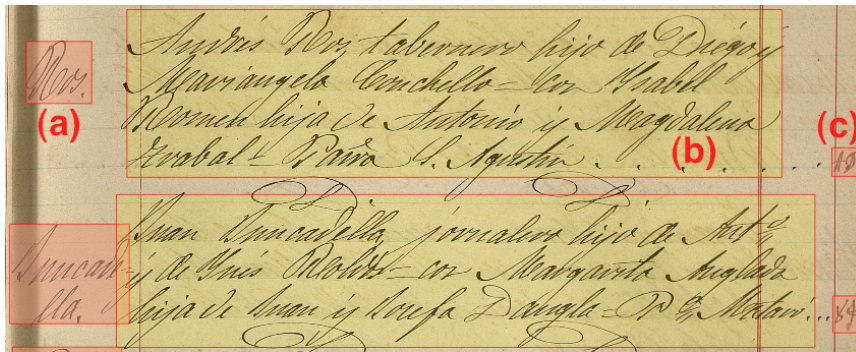 (a)
(b)
(c)
Ros.
Andrés Ros tabernero hijo de Diego y
Mariangela Conchello = con Ysabel
Romeu hija de Antonio y Magdalena
Grabal = Parra S. Agustin . . . . . . .
Juncadella.
Juan Juncadella, jornalero hijo de Anto.
y de Ynés = con Margarita Anglada
hija de Juan y Josefa Dangla = Pa. Mataró...